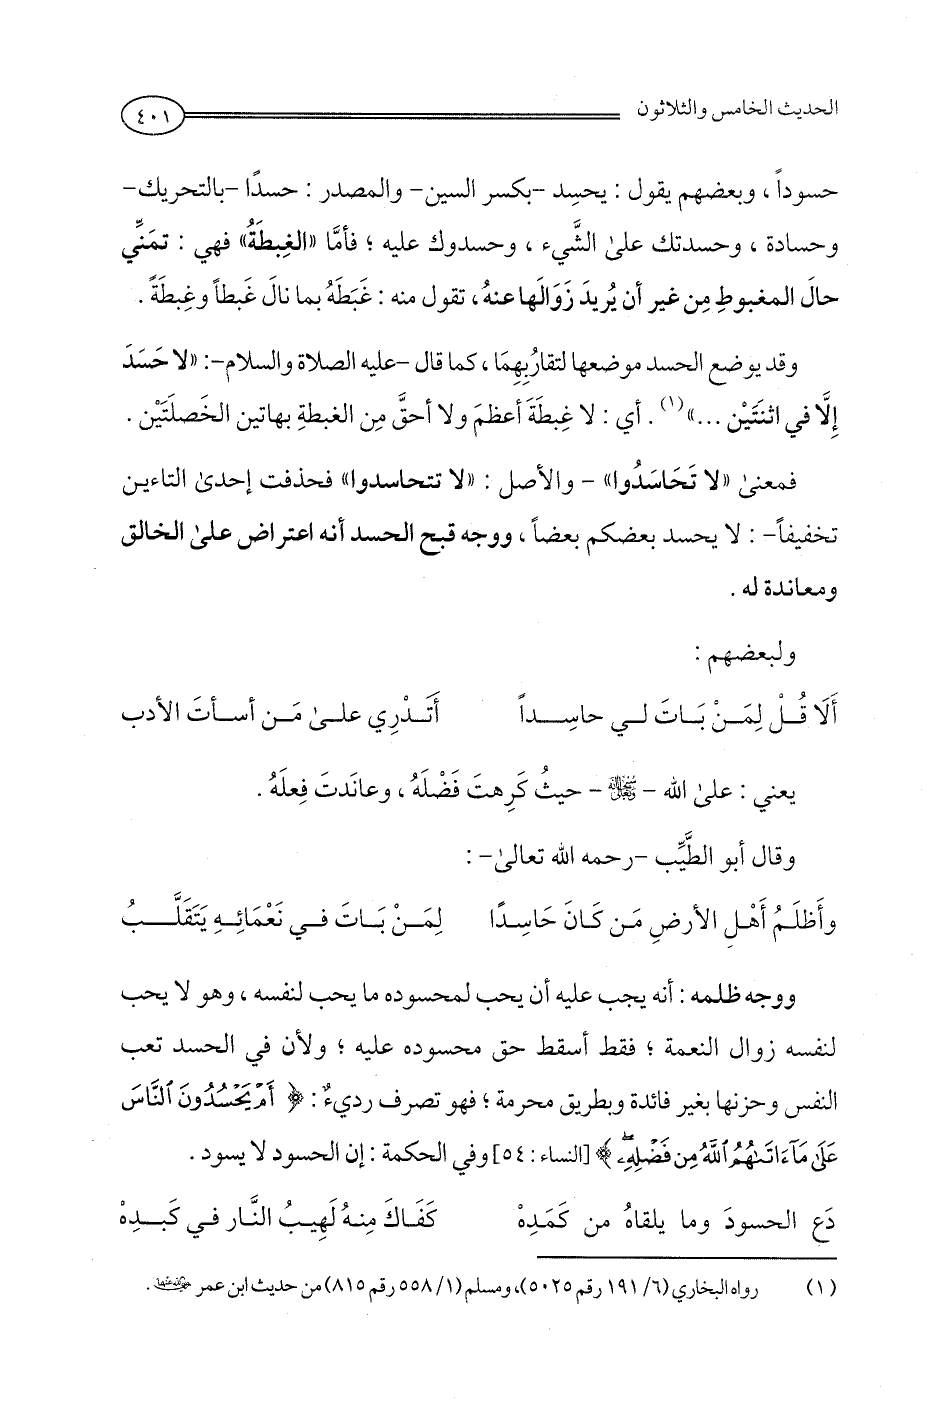 الحديث الخامس والثلاثون
٤٠١
حسوداً ، وبعضهم يقول : يحسِد –بكسر السين– والمصدر : حسدًا –بالتحريك–
وحسادة ، وحسدتك علىٰ الشَّيء ، وحسدوك عليه ؛ فأمَّا «الغِبطَةُ» فهي : تمَنِّي
حالَ المغبوطِ مِن غير أن يُريدَ زَوَالَها عنهُ، تقول منه : غَبَطَهُ بما نالَ غَبطاً وغِبطَةً .
وقد يوضع الحسد موضعها لتقارُبِهِمَا ، كما قال –عليه الصلاة والسلام–: «لا حَسَدَ
إلَّا في اثنَتَيْن ...»(١) . أي : لا غِبطَةَ أعظمَ ولا أحقَّ مِن الغبطةِ بهاتين الخَصلَتَيْن .
فمعنىٰ «لا تَحَاسَدُوا» – والأصل : «لا تتحاسدوا» فحذفت إحدىٰ التاءين
تخفيفاً– : لا يحسد بعضكم بعضاً ، ووجه قبح الحسد أنه اعتراض علىٰ الخالق
ومعاندة له .
ولبعضهم :
أَلَا قُــلْ لِمَــنْ بَــاتَ لــي حاسِــداً أَتَــدْرِي علــىٰ مَــن أسـأتَ الأدب
يعني : علىٰ الله – ﷻ – حيثُ كَرِهتَ فَضْلَهُ ، وعانَدتَ فِعلَهُ .
وقال أبو الطَّيِّب –رحمه الله تعالىٰ– :
وأَظلَـمُ أَهْـلِ الأرضِ مَـن كَـانَ حَاسِـدًا لِمَـنْ بَـاتَ فــي نَعْمَائِــهِ يَتَقَلَّــبُ
ووجه ظلمه : أنه يجب عليه أن يحب لمحسوده ما يحب لنفسه ، وهو لا يحب
لنفسه زوال النعمة ؛ فقط أسقط حق محسوده عليه ؛ ولأن في الحسد تعب
النفس وحزنها بغير فائدة وبطريق محرمة ؛ فهو تصرف رديءٌ : ﴿ أَمْ يَحْسُدُونَ ٱلنَّاسَ
عَلَىٰ مَآ ءَاتَىٰهُمُ ٱللَّهُ مِن فَضْلِهِۦ ﴾ [النساء : ٥٤] وفي الحكمة : إن الحسود لا يسود .
دَعِ الحسودَ وما يلقاهُ من كَمَدِهْ كَفَاكَ مِنهُ لَهِيبُ النَّار في كَبِدِهْ
(١) رواه البخاري (٦/ ١٩١ رقم ٥٠٢٥)، ومسلم (١/ ٥٥٨ رقم ٨١٥) من حديث ابن عمر رضي الله عنهما .